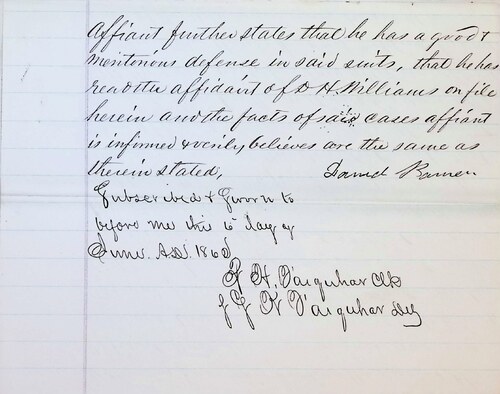 Affiant further states that he has a good &
meritorious defense in said suits, that he has
read the affidavit of D H Williams on file
herein and the facts of said cases affiant
is informed & verily believes are the same as
therein stated,
David
Subscribed & Sworn to
before me this 15 day of
June. A.D. 186
H. Farquhar Clk
Farquhar Dy